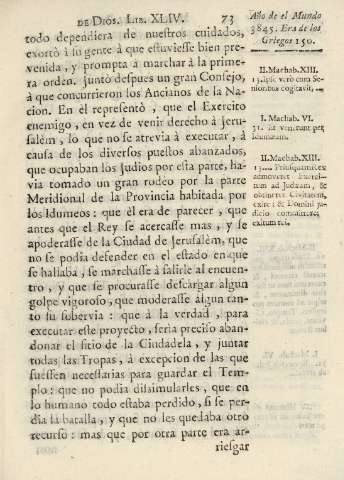 DE DIOS. LIB. XLIV. 73
todo dependiera de nuestros cuidados,
exortò à su gente à que estuviesse bien pre-
venida, y prompta à marchar à la prime-
ra orden. Juntò despues un gran Consejo,
à que concurrieron los Ancianos de la Na-
cion. En èl representò, que el Exercito
enemigo, en vez de venir derecho à Jeru-
salèm, lo que no se atrevia à executar, à
causa de los diversos puestos abanzados,
que ocupaban los Judios por esta parte, ha-
via tomado un gran rodeo por la parte
Meridional de la Provincia habitada por
los Idumeos: que èl era de parecer, que
antes que el Rey se acercasse mas, y se
apoderasse de la Ciudad de Jerusalèm, que
no se podia defender en el estado en que
se hallaba, se marchasse à salirle al encuen-
tro, y que se procurasse descargar algun
golpe vigoroso, que moderasse algun tan-
to su sobervia: que à la verdad, para
executar este proyecto, seria preciso aban-
donar el sitio de la Ciudadela, y juntar
todas las Tropas, à excepcion de las que
fuessen necessarias para guardar el Tem-
plo: que no podia dissimularles, que en
lo humano todo estaba perdido, si se per-
dia la batalla, y que no les quedaba otro
recurso: mas que por otra parte era ar-
riesgar
Año de el Mundo
3845. Era de los
Griegos 150.
II. Machab. XIII.
13. ipse verò cum Se-
nioribus cogitavit, ...
I. Machab. VI.
31. Et venerunt per
Idumæam.
II. Machab. XIII.
13. ... Priusquam rex
admoveret exerci-
tum ad Judæam, &
obtineret Civitatem,
exire: & Domini ju-
dicio committere
exitum rei.